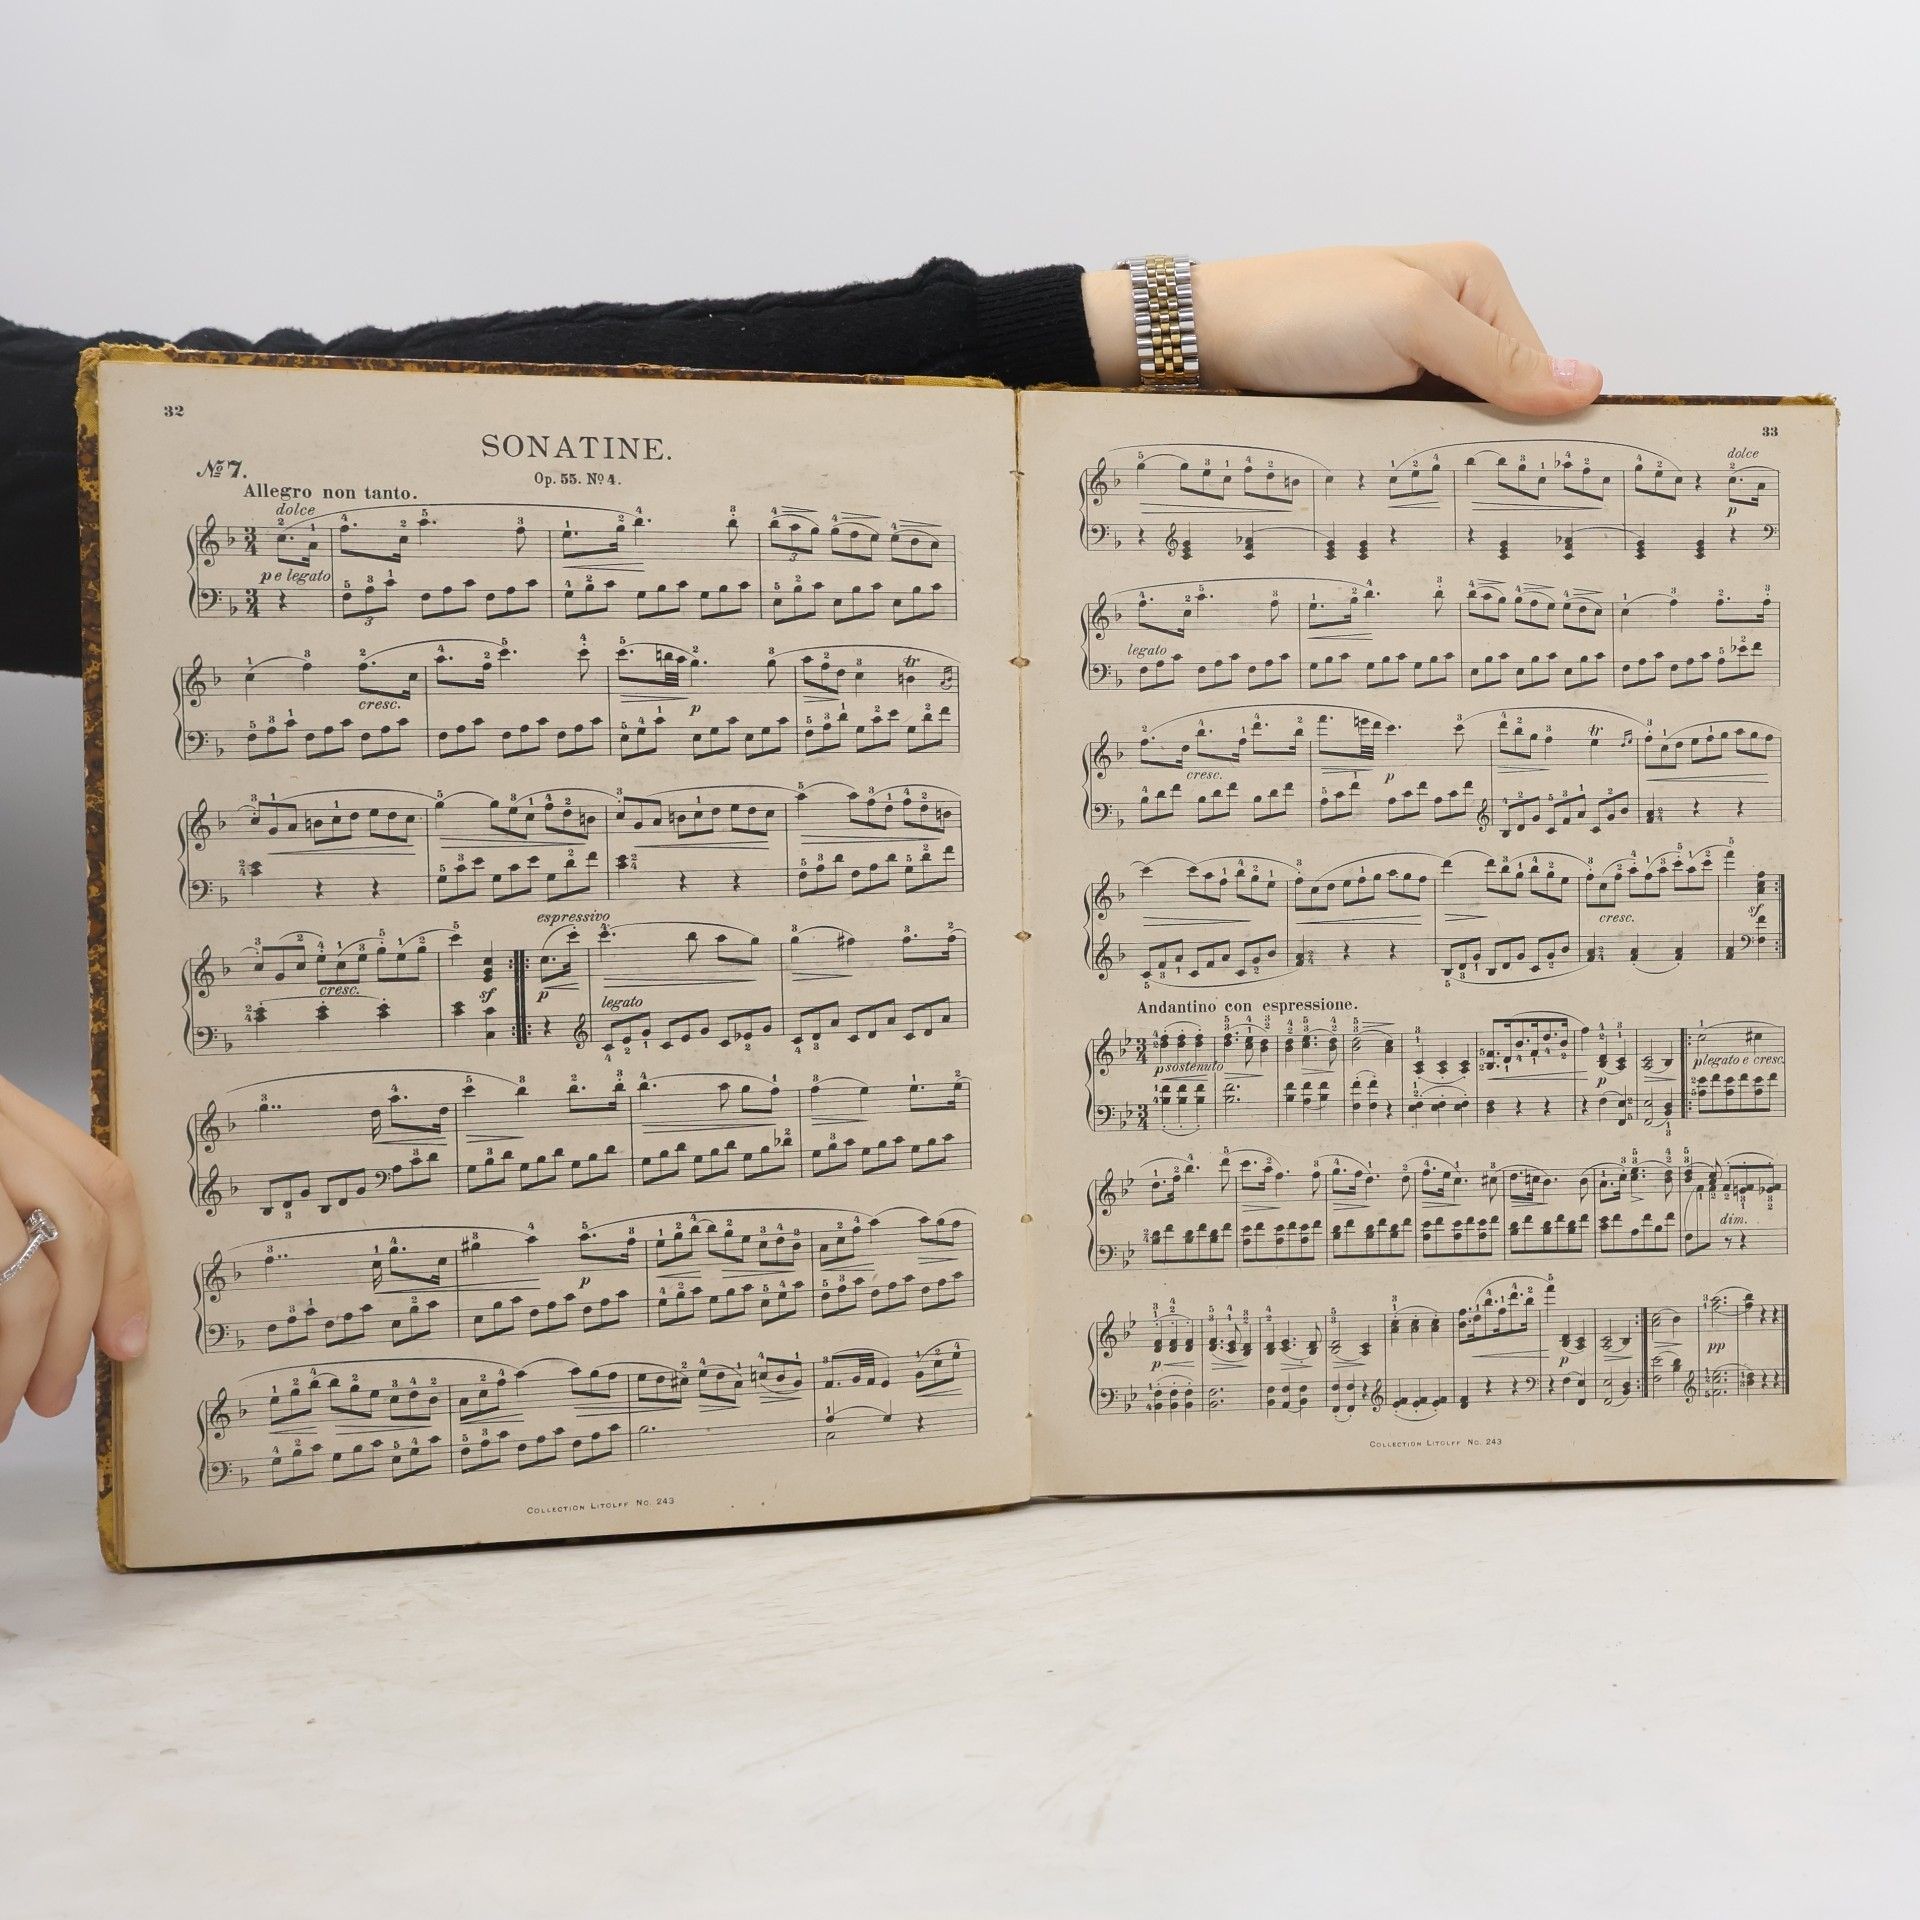 32
SONATINE.
Nº 7.
Op. 55. Nº 4.
Allegro non tanto.
dolce
p e legato
cresc.
p
espressivo
cresc.
sf
p
legato
p
COLLECTION LITOLFF No. 243
33
dolce
p
legato
cresc.
p
cresc.
sf
Andantino con espressione.
p sostenuto
p
p legato e cresc.
dim.
p
p
pp
COLLECTION LITOLFF No. 243